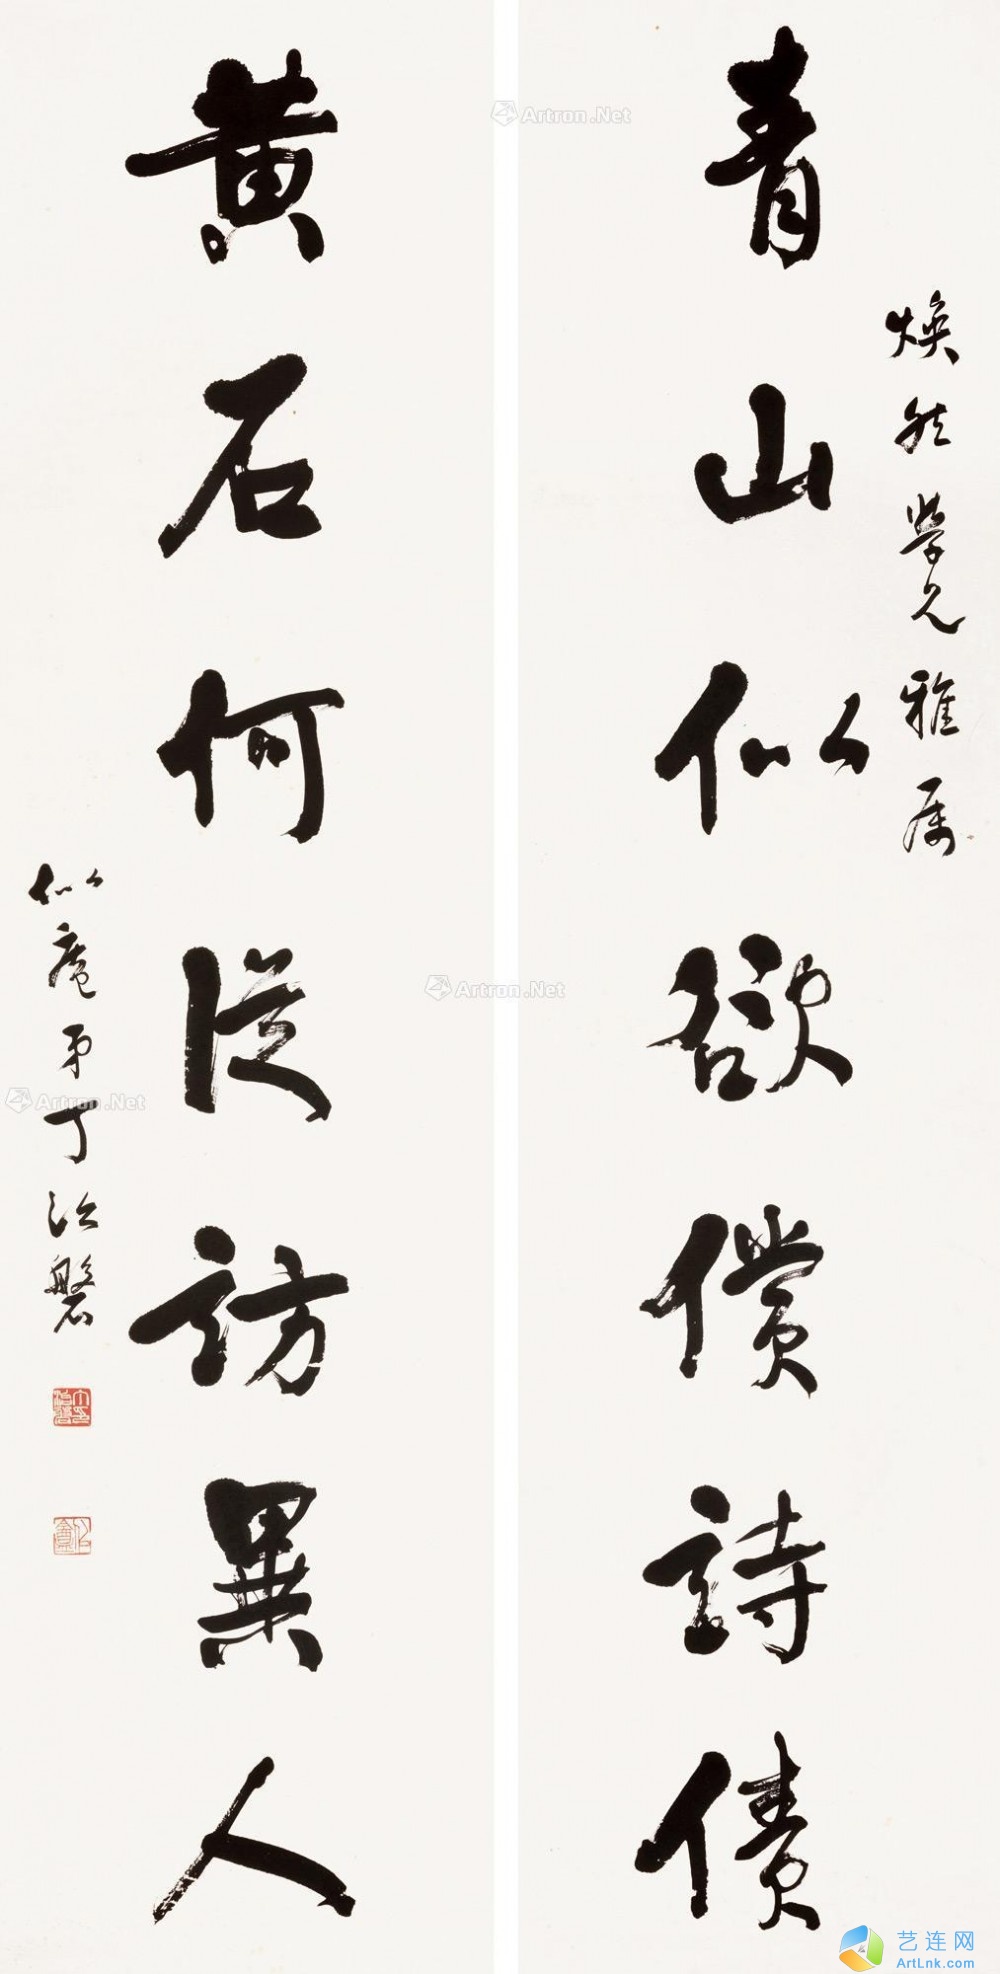 青山似欲償詩債
煥然學兄雅属
黄石何從訪異人
似庵弟丁治磐
Artron.Net
Artron.Net
Artron.Net
艺连网
ArtLnk.com